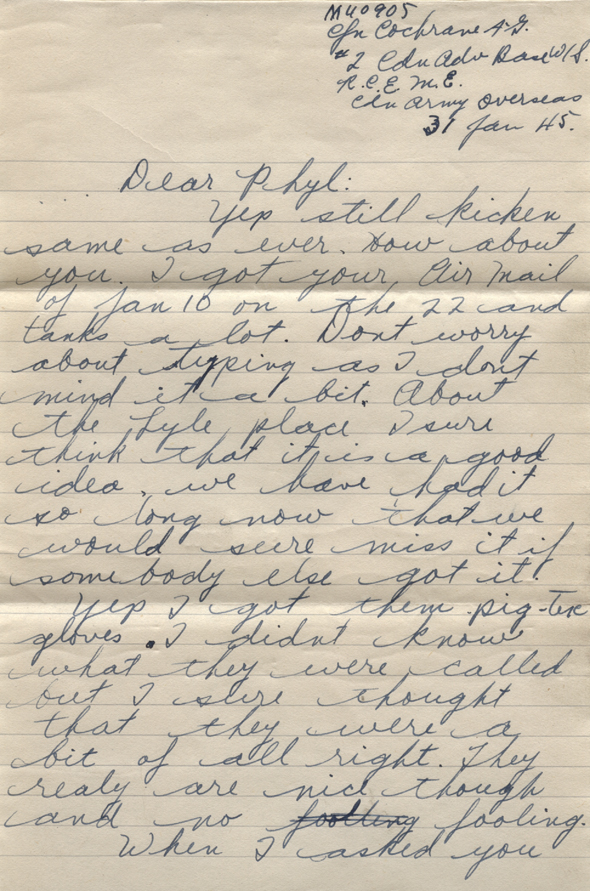 M40905
Cfn Cochrane A.G.
#2 Cdn Adv Base W/S.
R.C.E.M.E.
Cdn Army Overseas
31 Jan 45.
Dear Phyl:
Yep still kicken
same as ever. How about
you. I got your Air Mail
of Jan 10 on the 22 and
tanks a lot. Dont worry
about typing as I dont
mind it a bit. About
the Lyle place I sure
think that it is a good
idea, we have had it
so long now that we
would sure miss it if
somebody else got it.
Yep I got them pig-Tex
gloves. I didnt know
what they were called
but I sure thought
that they were a
bit of all right. They
realy are nice though
and no fooling.
When I asked you